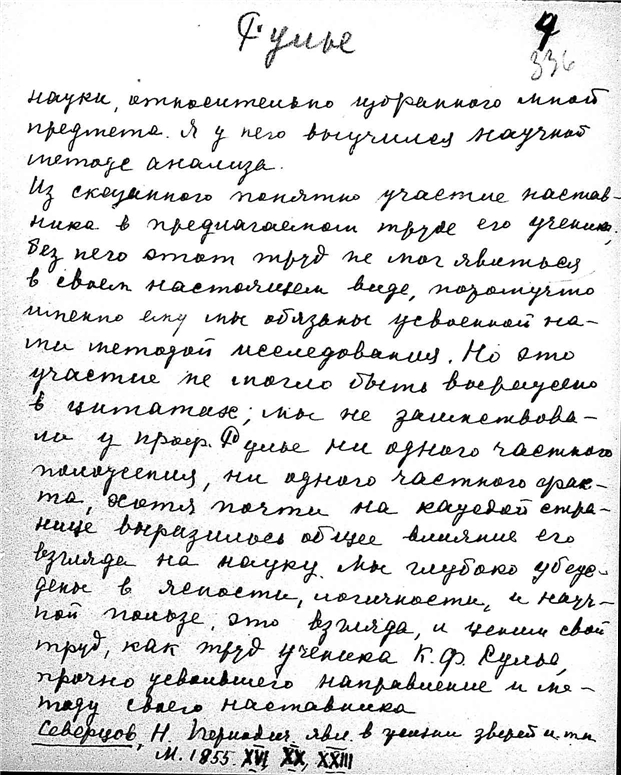 Рулье
4
336
науки, относительно избранного мной
предмета. Я у него выучился научной
методе анализа.
Из сказанного понятно участие настав-
ника в предлагаемом труде его ученика,
без него этот труд не мог явиться
в своем настоящем виде, потомучто
именно ему мы обязаны усвоенной на-
ми методой исследования. Но это
участие не могло быть выражено
в цитатах; мы не заимствова-
ли у проф. Рулье ни одного частного
положения, ни одного частного фак-
та, хотя почти на каждой стра-
нице выразилось общее влияние его
взгляда на науку. Мы глубоко убеж-
дены в ясности, логичности, и науч-
ной пользе, это взгляда, и ценим свой
труд, как труд ученика К.Ф. Рулье,
прочно усвоившего направление и ме-
тоду своего наставника
Северцов, Н. Периодич. явл. в жизни зверей и. тп
М. 1855 XVI, XX, XXIII